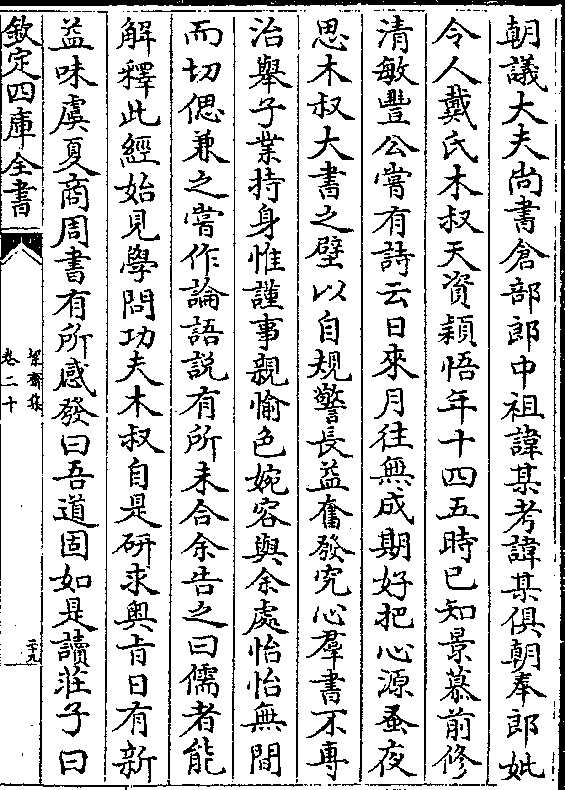 朝議大夫尚書倉部郎中祖諱某考諱某俱朝奉郎妣
令人戴氏木叔天資穎悟年十四五時已知景慕前修
清敏豐公嘗有詩云日來月往無成期好把心源蚤夜
思木叔大書之壁以自規警長益奮發究心羣書不專
治舉子業持身惟謹事親愉色婉容與余處怡怡無間
而切偲兼之嘗作論語説有所未合余告之曰儒者能
解釋此經始見學問功夫木叔自是研求奥旨日有新
益味虞夏商周書有所感發曰吾道固如是讀莊子曰
欽定四庫全書
絜齋集
卷二十
二十九